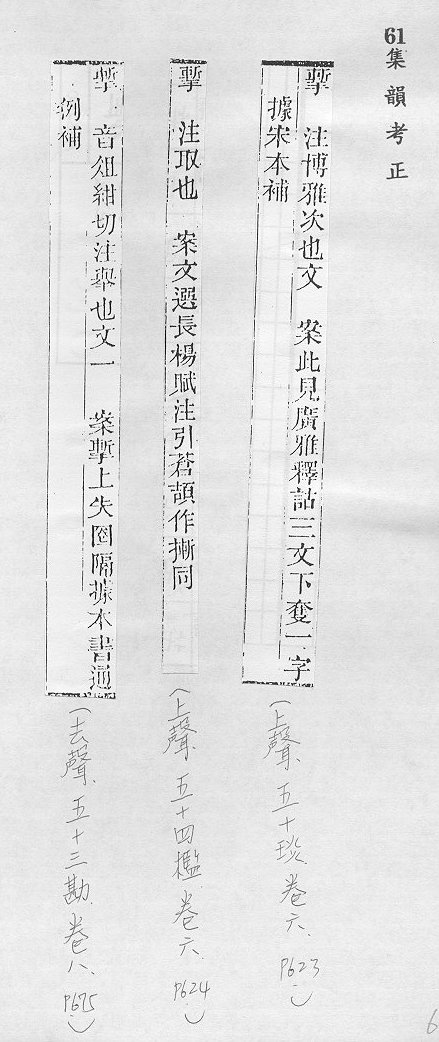 61
集韻考正
摲 注博雅次也文 案此見廣雅釋詁三文下奪一字
據宋本補
摲 注取也 案文選長楊賦注引蒼頡作摲同
音俎紺切注舉也文一 案 上失圈隔據本書通
例補
(上聲、五十琰、卷六、P623、)
(上聲、五十四檻、卷六、P624、)
(去聲、五十三勘、卷八、P675、)
6